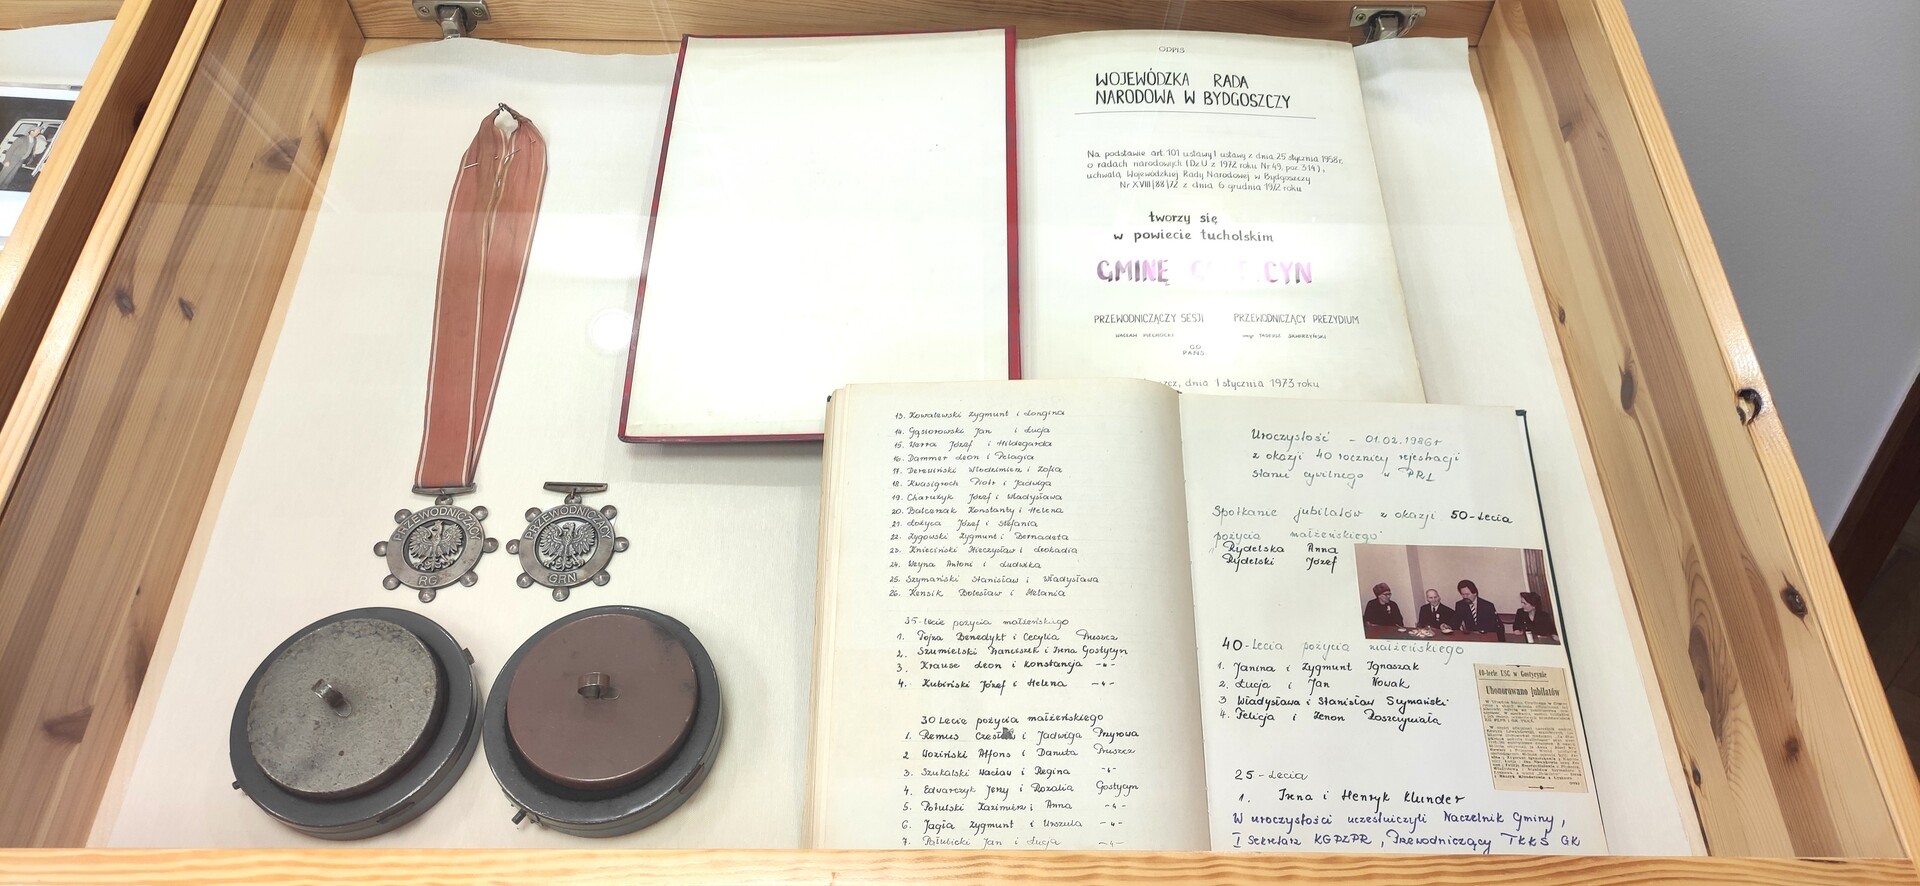 PRZEWODNICZĄCY
RG
PRZEWODNICZĄCY
GRN
ODPIS
WOJEWÓDZKA RADA
NARODOWA W BYDGOSZCZY
Na podstawie art. 101 ustawy z dnia 25 stycznia 1958r.
o radach narodowych (Dz.U z 1972 roku Nr 49, poz. 314),
uchwałą Wojewódzkiej Rady Narodowej w Bydgoszczy
Nr XVIII/88/72 z dnia 6 grudnia 1972 roku
tworzy się
w powiecie tucholskim
GMINĘ CYN
PRZEWODNICZĄCZY SESJI PRZEWODNICZĄCY PREZYDIUM
dnia 1 stycznia 1973 roku
13. Kowalewski Zygmunt i Longina
14. Gąsiorowski Jan i Łucja
15. Warra Józef i Hildegarda
16. Dammer Leon i Pelagia
17. Włodzimierz i Zofia
18. Kwasigroch Piotr i Jadwiga
19. Józef i Władysława
20. Balcerzak Konstanty i Helena
21. Łożyca Józef i Stefania
22. Żygowski Zygmunt i Bernadeta
23. Knieciński Mieczysław i Leokadia
24. Weyna Antoni i Ludwika
25. Szymański Stanisław i Władysława
26. Kensik Bolesław i Helania
35-lecie pożycia małżeńskiego
1. Tojza Benedykt i Cecylia Pruszcz
2. Szumielski Franciszek i Irena Gostycyn
3. Krause Leon i Konstancja -"-
4. Kubiński Józef i Helena -"-
30 Lecie pożycia małżeńskiego
1. Remus Czesław i Jadwiga Przyrowa
2 Woziński Alfons i Danuta Pruszcz
3. Szukalski Wacław i Regina -"-
4. Edwarczyk Jerzy i Rozalia Gostycyn
5. Potulski Kazimierz i Anna -"-
6. Jagła Zygmunt i Urszula -"-
7. Pałubicki Jan i Łucja -"-
Uroczystość - 01.02.1986r
z okazji 40 rocznicy rejestracji
stanu cywilnego w PRL
Spotkanie jubilatów z okazji 50-lecia
pożycia małżeńskiego
Rydelska Anna
Rydelski Józef
40-lecia pożycia małżeńskiego
1. Janina i Zygmunt Ignaszak
2. Łucja i Jan Nowak
3 Władysława i Stanisław Szymański
4. Felicja i Zenon Roszczyniała
40-lecie USC w Gostycynie
Uhonorowano jubilatów
25-lecia
1. Irena i Henryk Klunder
W uroczystości uczestniczyli Naczelnik Gminy,
I Sekretarz KGPZPR, Przewodniczący TKKŚ GK